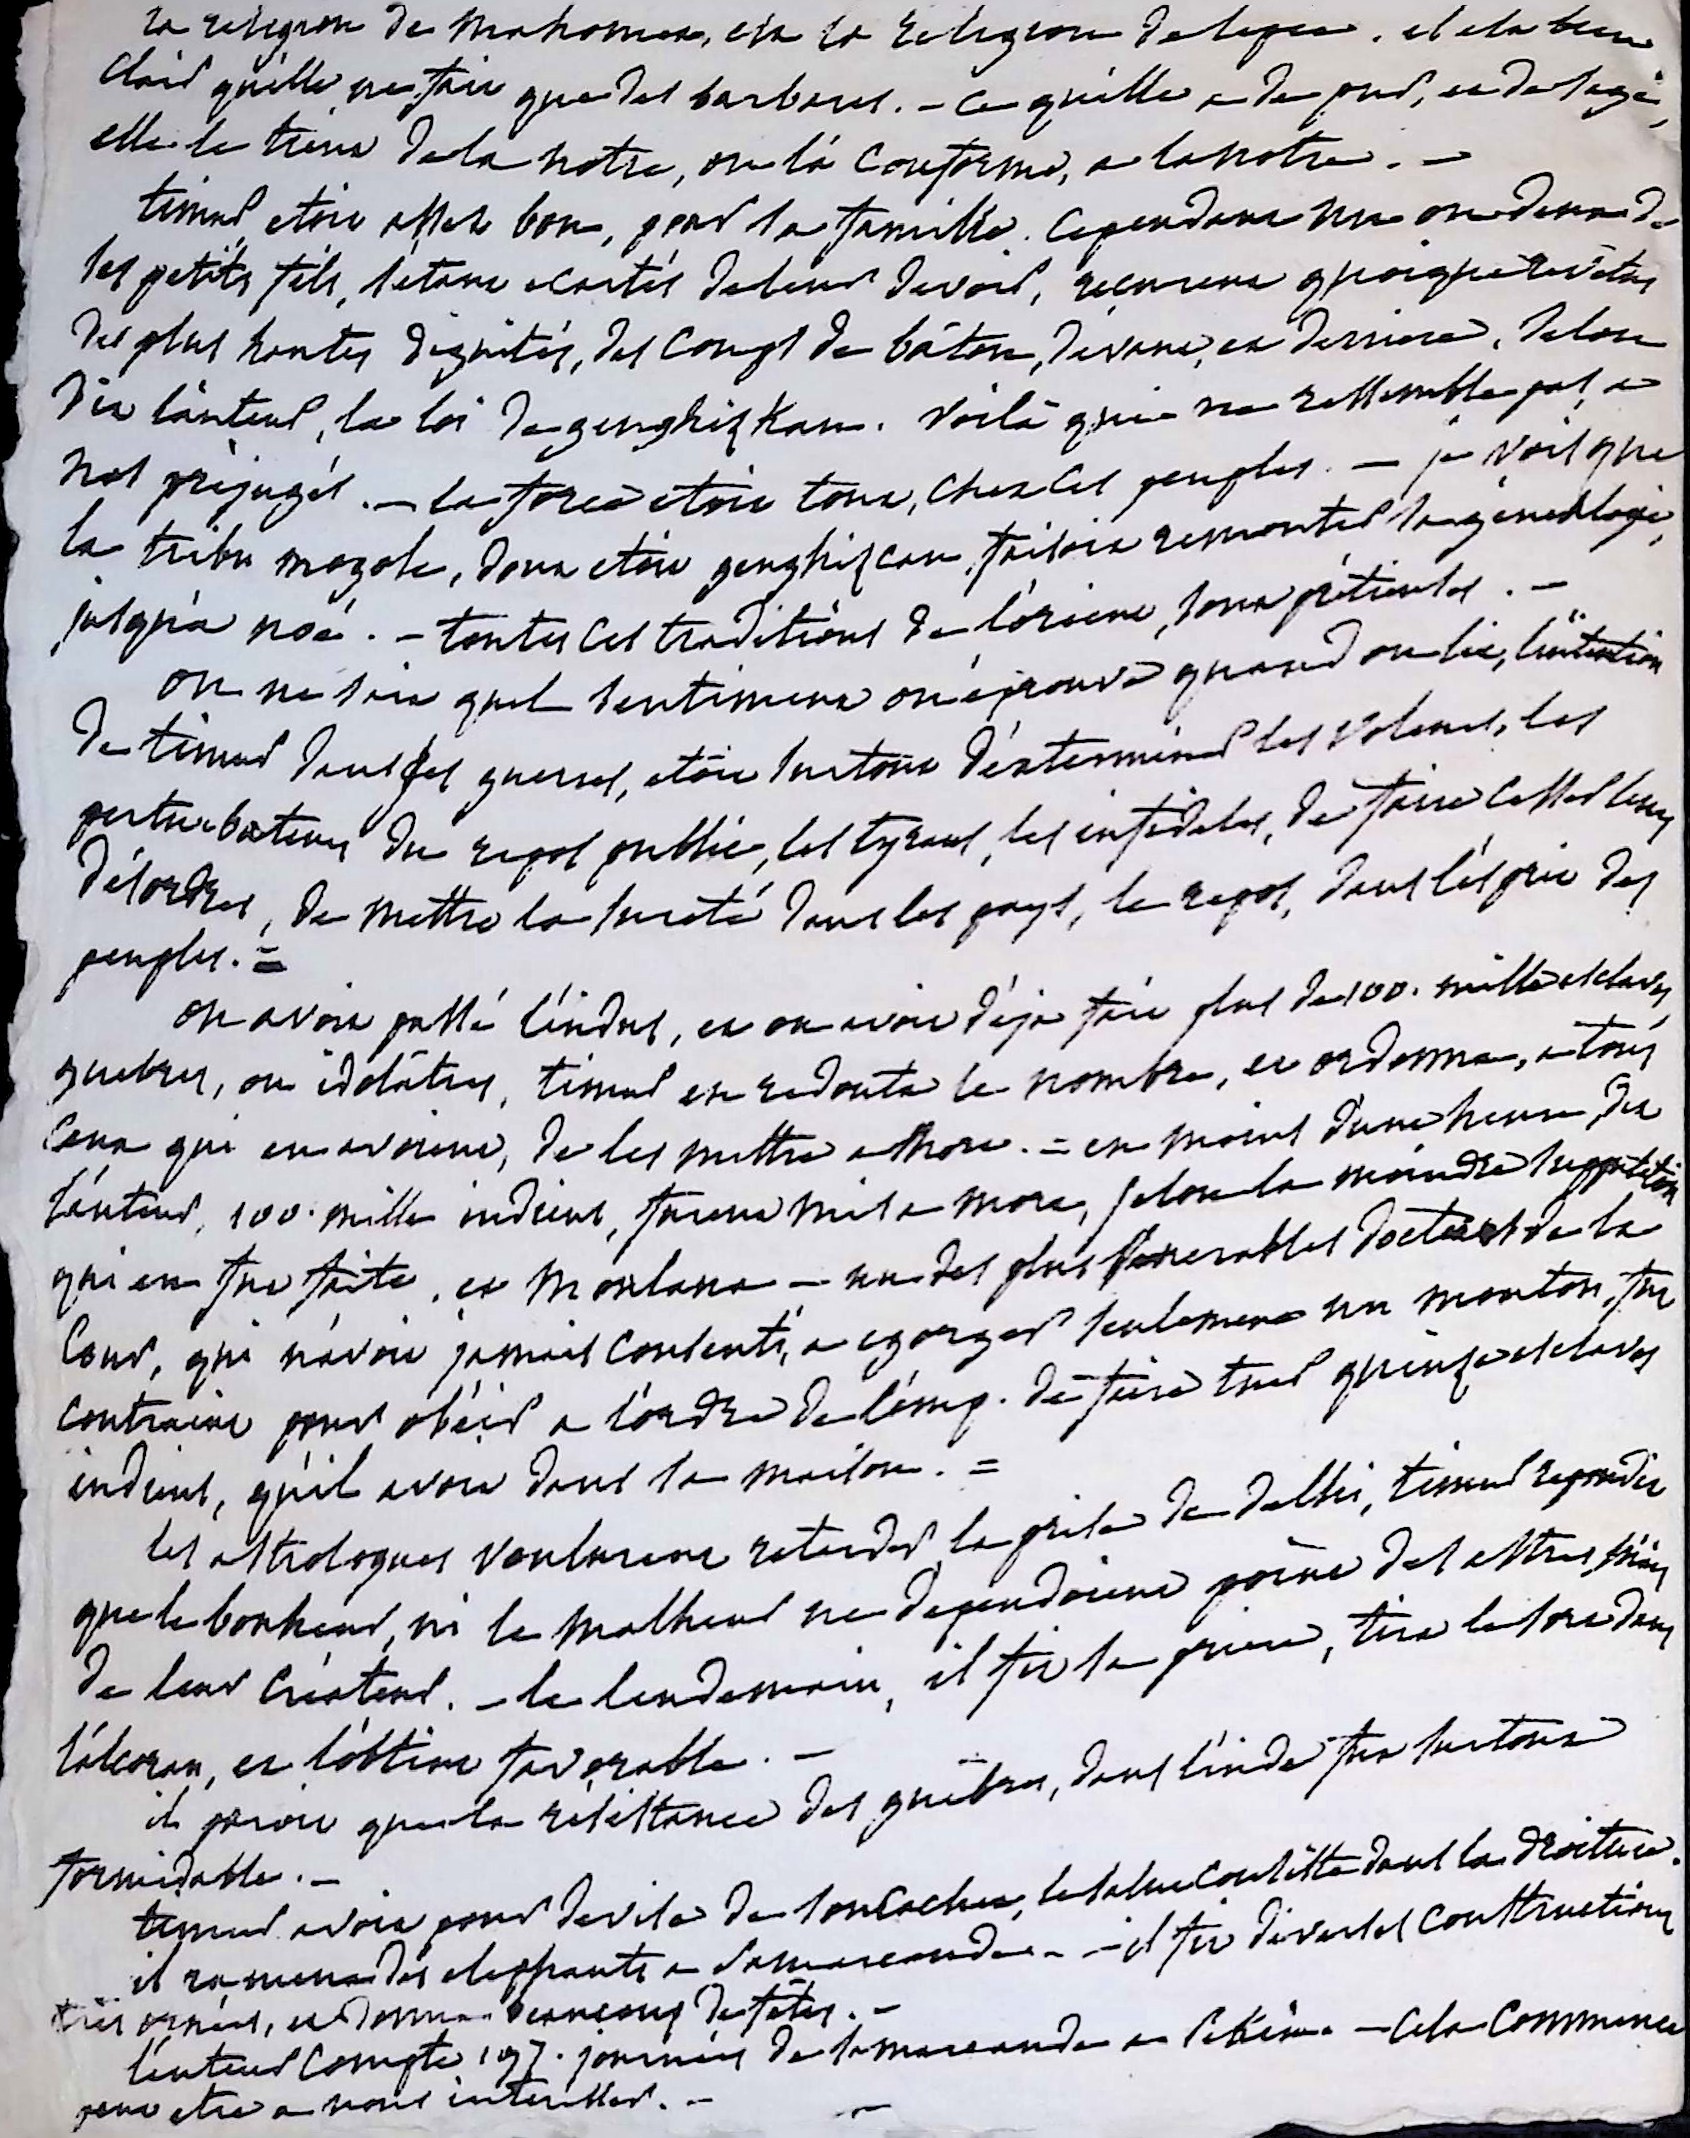 la religion de mahomet, est la religion de l'epée. il est bien
clair qu'elle ne fait que des barbares. — ce qu'elle a de pur, et de sage,
elle le tient de la notre, ou l'a conformé, a la notre. —
timur etoit assez bon, pour sa famille. cependant un ou deux de
ses petits fils, s'étant ecartés de leur devoir, recurent quoique revêtus
des plus hautes dignités, des coups de bâton, devant, et derriere, selon
dit l'auteur, la loi de genghizkan. voilà qui ne ressemble pas, a
nos préjugés. — la force etoit tout, chez ces peuples. — je vois que
la tribu mogole, dont etoit genghizcan, faisoit remonter sa généalogie,
jusqu'a noé. — toutes ces traditions de l'orient, sont précieuses. —
on ne sait quel sentiment on éprouve quand on lit, l'intention
de timur dans ses guerres, etoit surtout d'exterminer les voleurs, les
perturbateurs du repos public, les tyrans, les infideles, de faire cesser leurs
désordres, de mettre la sureté dans les pays, le repos, dans l'esprit des
peuples. =
on avoit passé l'indus, et on avoit déja fait plus de 100. mille esclaves,
guebres, ou idolâtres, timur en redouta le nombre, et ordonna, a tous
ceux qui en avoient, de les mettre a mort. = en moins d'une heure, dit
l'auteur, 100. mille indiens, furent mis a mort, selon la moindre supputation
qui en fut faite. et Moulana — un des plus venerables docteurs de la
cour, qui n'avoit jamais consenti, a egorger seulement un mouton, fut
contraint pour obéir a l'ordre de l'emp. de faire tuer quinze esclaves
indiens, qu'il avoit dans sa maison. =
les astrologues voulurent retarder la prise de delhi, timur repondit
que le bonheur, ni le malheur ne dependoient point des astres, mais
de leur créateur. — le lendemain, il fit sa priere, tira le sort dans
l'alcoran, et l'obtint favorable. —
il paroit que la résistance des guèbres, dans l'inde fut surtout
formidable. —
timur avoit pour devise de son cachet, le salut consiste dans la droiture.
il ramena des elephants a samarcande. — il fit diverses constructions
très ornées, et donna beaucoup de fêtes. —
l'auteur compte 197. journées de samarcande a Pekin. — cela commence
peut etre a nous interesser. —